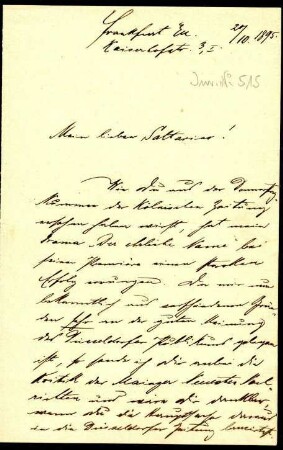 Frankfurt M.
Kaiserhofstr. 3, I.
20/10. 1895.
Inv. Nr 515
Mein lieber Sattarius!
Wie Du aus der
Nummer der Kölnischen Zeitung
ersehen haben wirst, hat mein
Drama Der ehrliche Name bei
seiner Première einen starken
Erfolg errungen. Da mir nun
bekanntlich aus verschiedenen Gründen
sehr an der guten Meinung
des Düsseldorfer Publikums gelegen
ist, so sende ich Dir anbei die
Kritik der Mainzer Neuesten Nach-
richten und wäre Dir dankbar
wenn Du die Hauptsache daraus
in die Düsseldorfer Zeitung